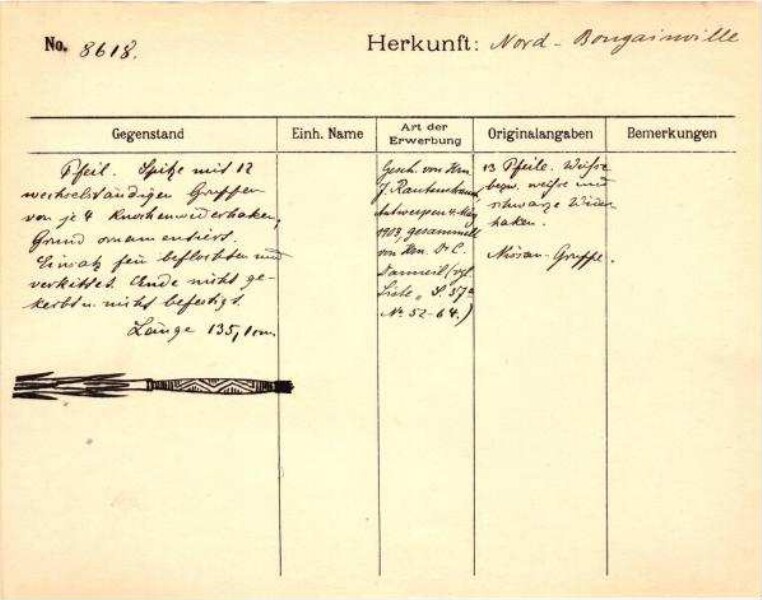 No. 8618.
Herkunft: Nord-Bougainville
Gegenstand
Einh. Name
Art der Erwerbung
Originalangaben
Bemerkungen
Pfeil. Spitze mit 12
wechselständigen Gruppen
von je 4 Knochenwiederhaken,
Grund ornamentiert.
Einsatz fein beflochten und
verkittet. Ende nicht ge-
kerbt u. nicht befestigt.
Länge 135,1 cm.
Gesch. von Hrn.
J. Rautenstrauch,
Antwerpen 4. März
gesammelt
von Hrn. Dr C.
(vgl.
Liste S. 57a
No 52-64.)
13 Pfeile. Weisse
bezw. weisse und
schwarze Wieder
haken.
Nissan-Gruppe.